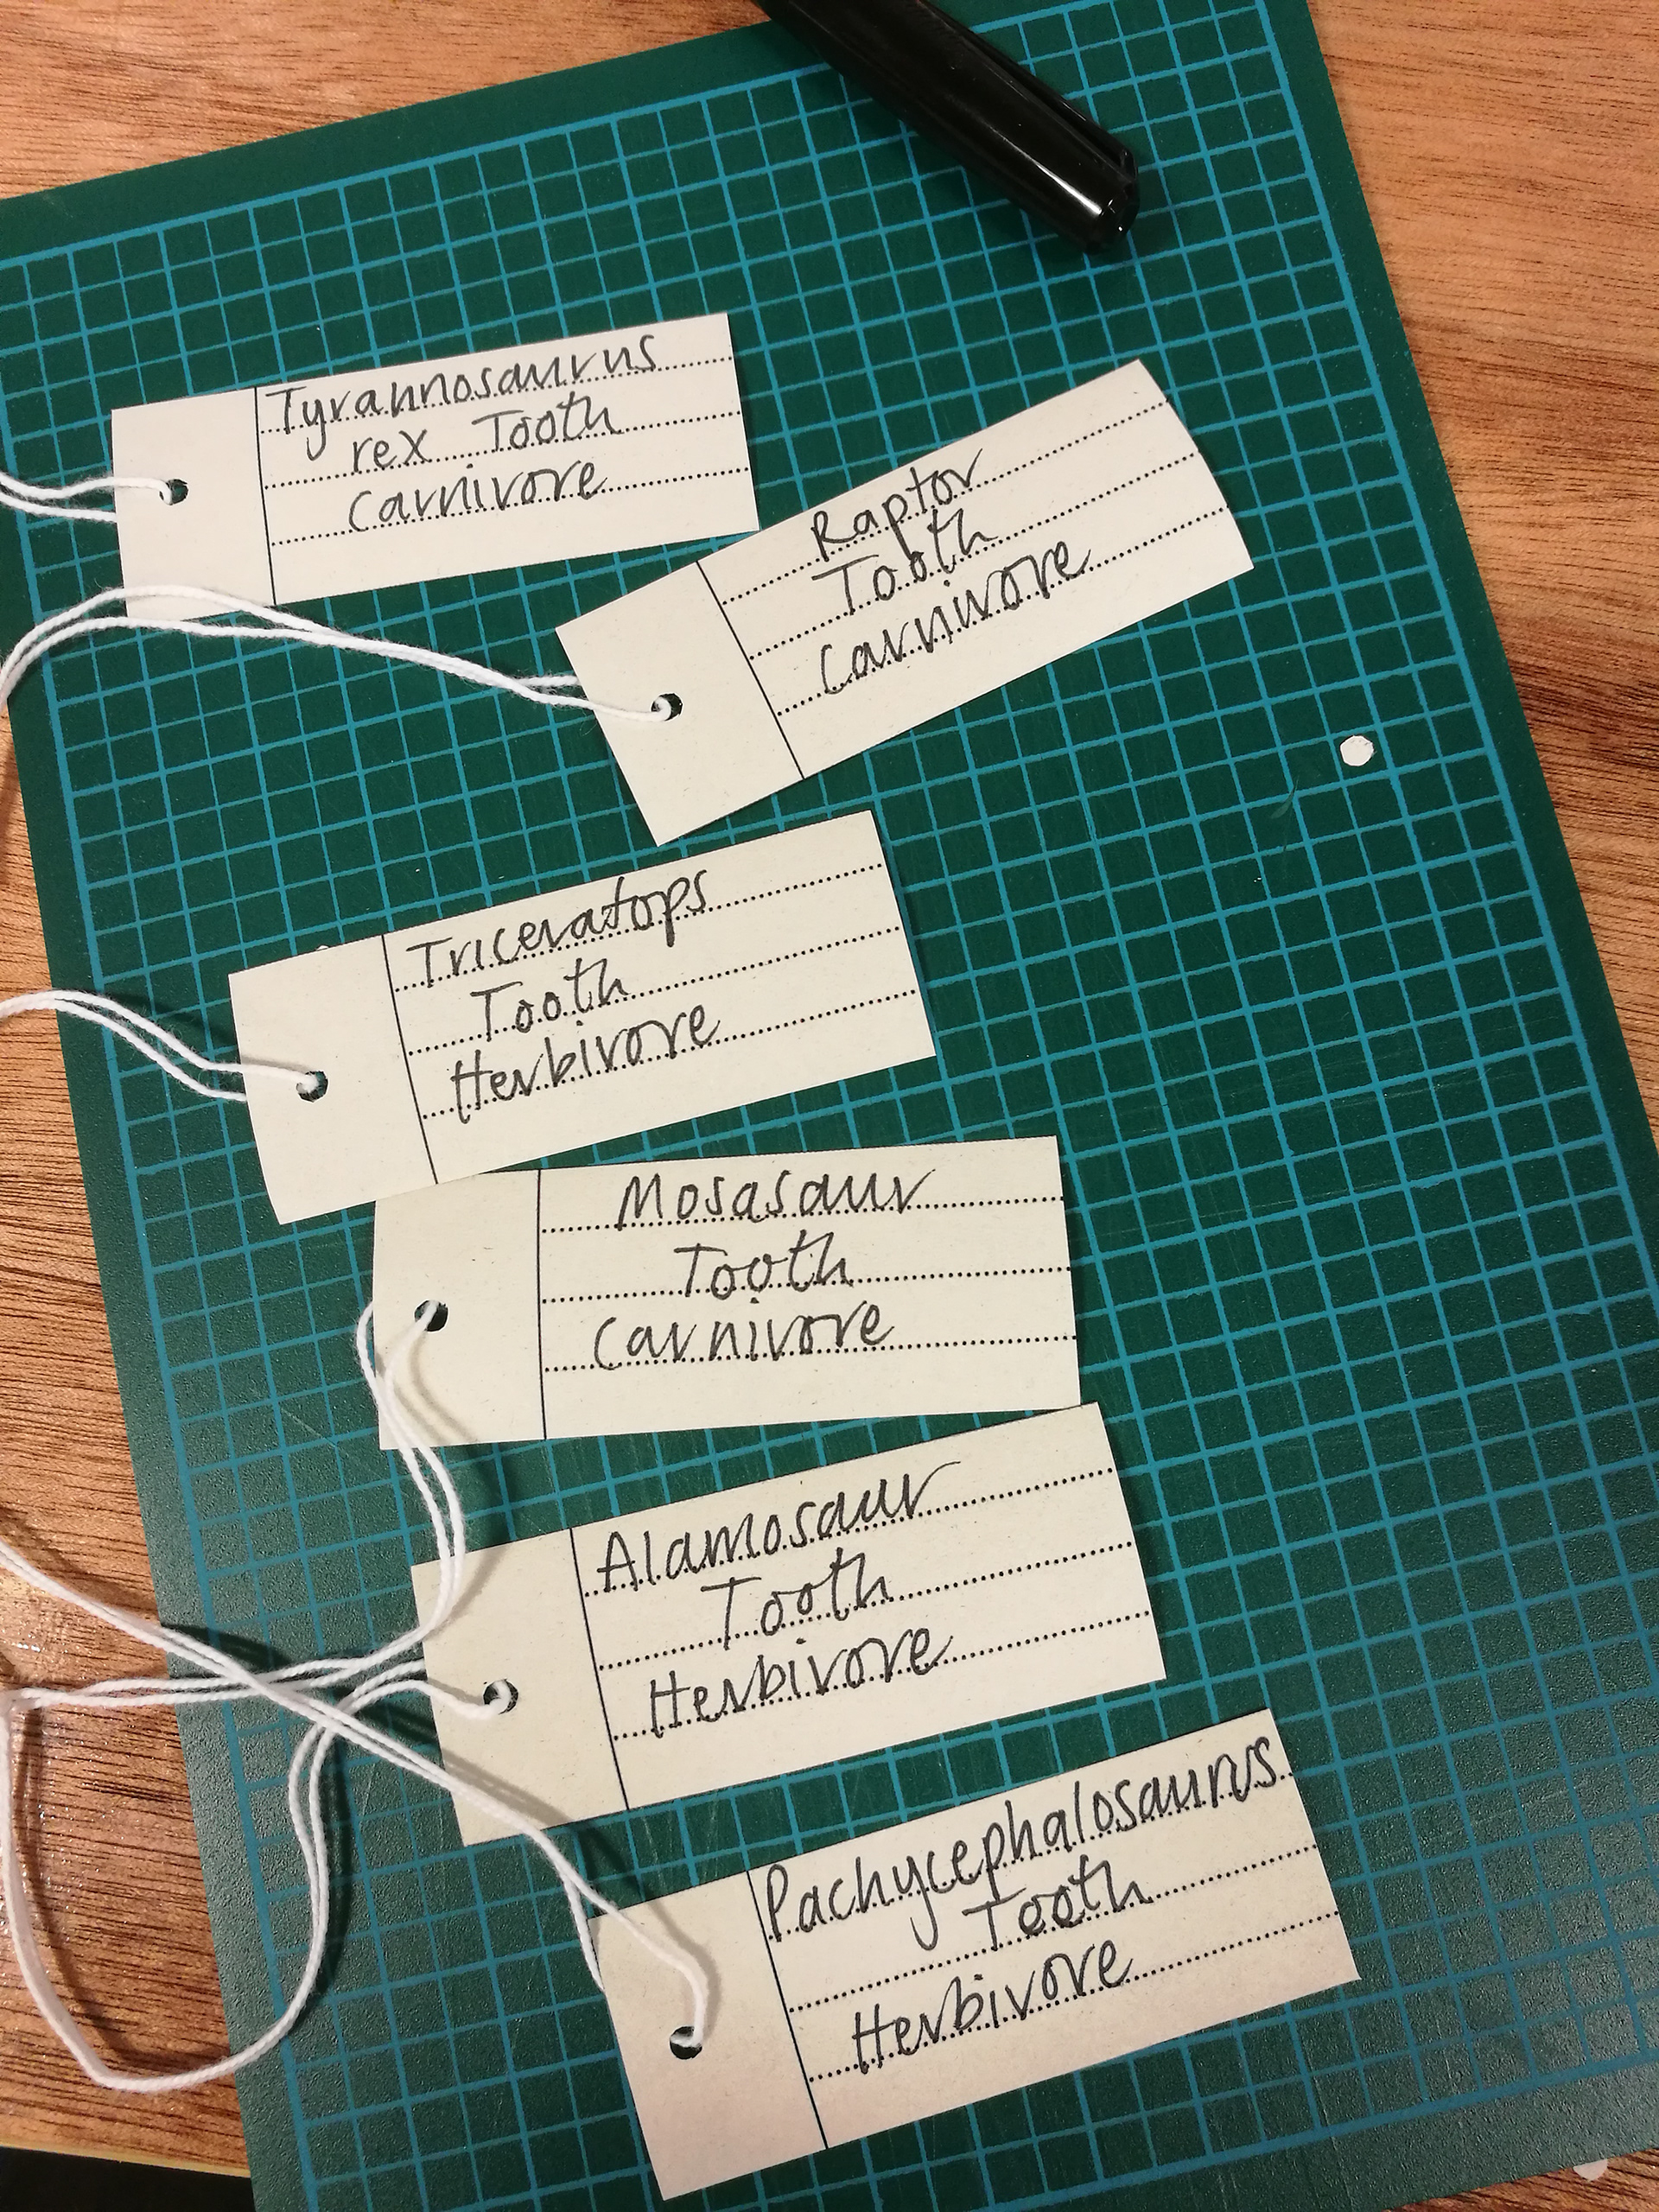 Tyrannosaurus
rex Tooth
Carnivore
Raptor
Tooth
Carnivore
Triceratops
Tooth
Herbivore
Mosasaur
Tooth
Carnivore
Alamosaur
Tooth
Herbivore
Pachycephalosaurus
Tooth
Herbivore